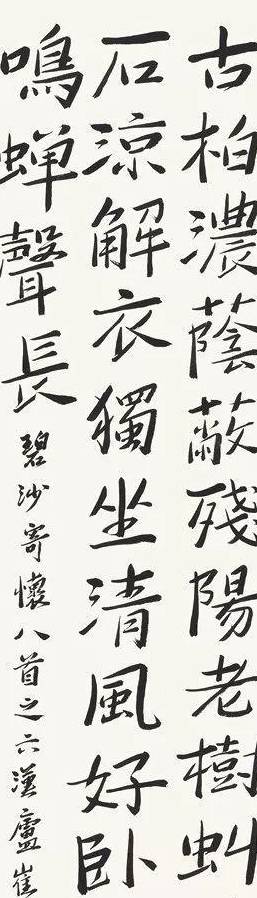 古柏濃蔭蔽殘陽老樹虬
石涼解衣獨坐清風好卧
鳴蝉聲長
碧沙寄懷八首之六漢廬崔